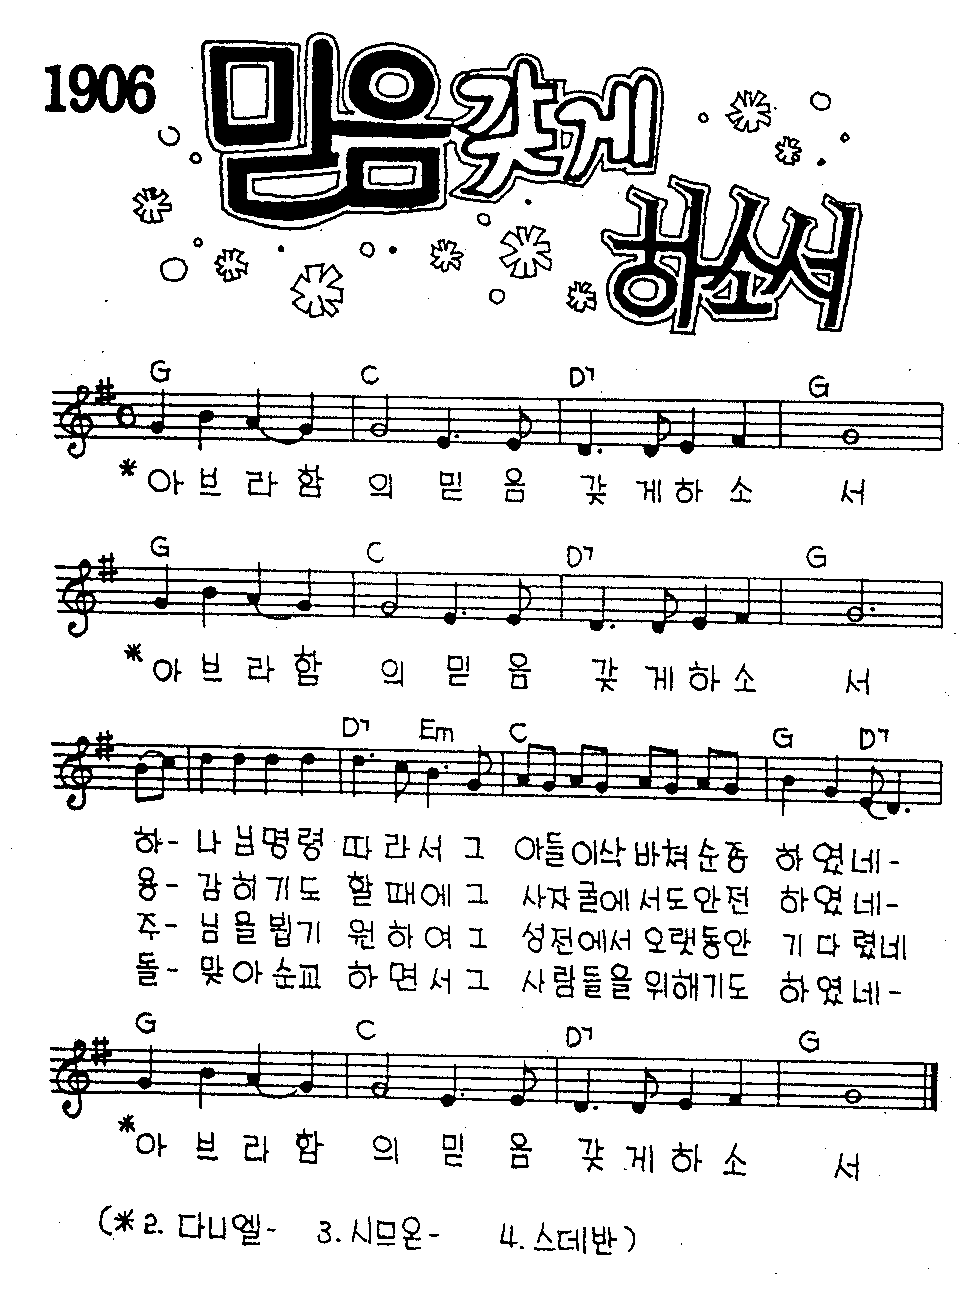 1906
믿음 갖게
하소서
G C D7 G
*아브라함의 믿음 갖게하소서
G C D7 G
*아브라함의 믿음 갖게하소서
D7 Em C G D7
하- 나님명령 따라서 그 아들이삭 바쳐순종 하였네-
용- 감히기도 할때에 그 사자굴에서도안전 하였네-
주- 님을뵙기 원하여 그 성전에서 오랫동안 기다렸네
돌- 맞아순교 하면서 그 사람들을 위해기도 하였네-
G C D7 G
*아브라함의 믿음 갖게하소서
(*2. 다니엘- 3. 시므온- 4. 스데반)